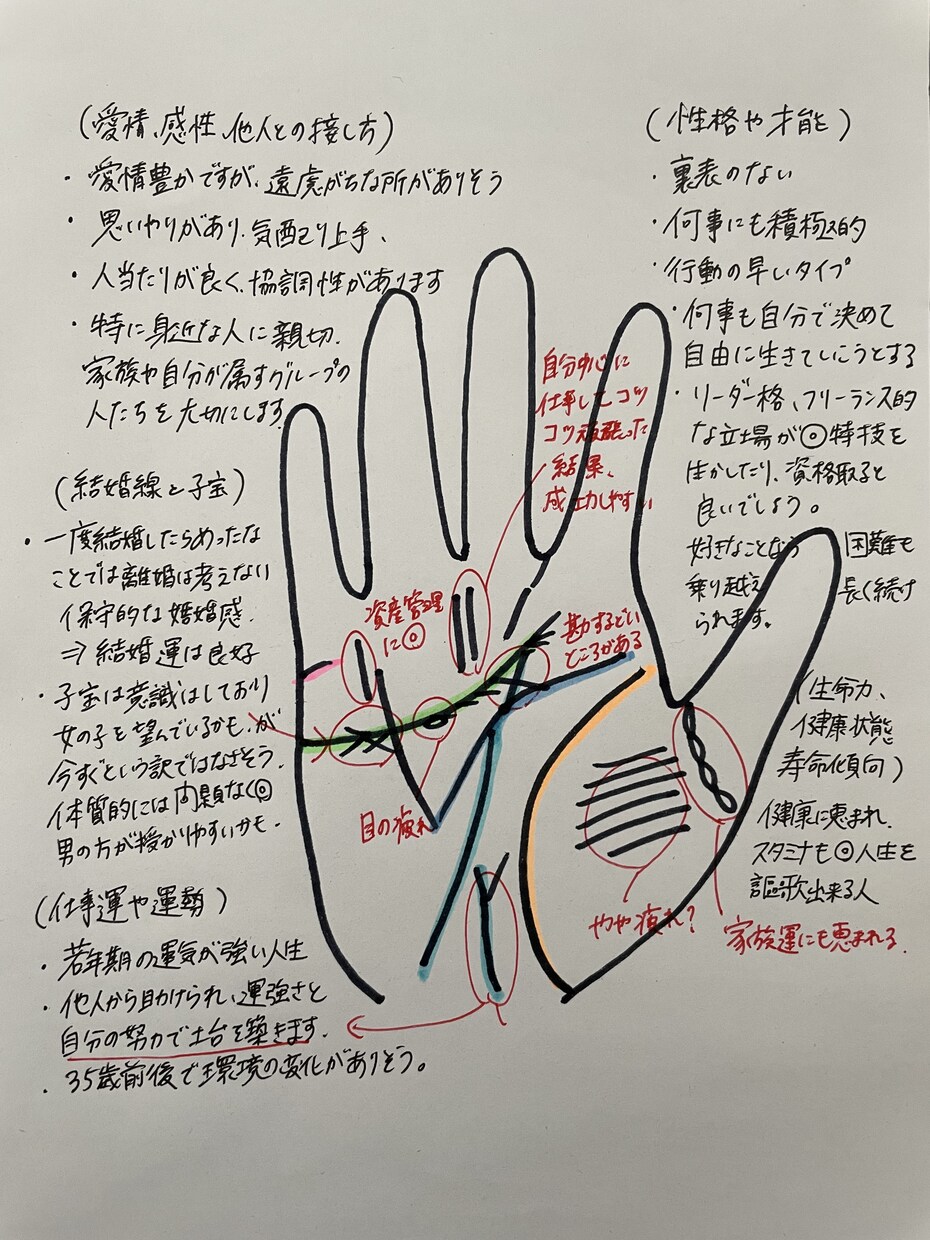 (愛情、感性、他人との接し方)
・愛情豊かですが、遠慮がちな所がありそう
・思いやりがあり、気配り上手、
・人当たりが良く、協調性があります
・特に身近な人に親切、
家族や自分が属すグループの
人たちを大切にします。
(結婚線と子宝)
・一度結婚したらめったな
ことでは離婚は考えない
保守的な婚婚感。
⇒結婚運は良好
・子宝は意識はしており
女の子を望んでいるかも、が
今すぐという訳ではなさそう。
体質的には問題なく◎
男の方が授かりやすいかも。
(仕事運や運勢)
・若年期の運気が強い人生
・他人から助けられ、運強さと
自分の努力で土台を築きます。
・35歳前後で環境の変化がありそう。
自分中心に
仕事したコツ
コツ頑張った
結果、
成功しやすい
資産管理
に◎
勘するどい
ところがある
目の疲れ
やや疲れ?
家族運にも恵まれる。
(性格や才能)
・裏表のない
・何事にも積極的
・行動の早いタイプ
・何事も自分で決めて
自由に生きていこうとする
・リーダー格、フリーランス的
な立場が◎特技を
生かしたり、資格取ると
良いでしょう。
好きなことなら
乗り越え
られます。
困難も
長く続け
(生命力、
健康状態
寿命傾向)
健康に恵まれ、
スタミナも◎人生を
謳歌出来る人